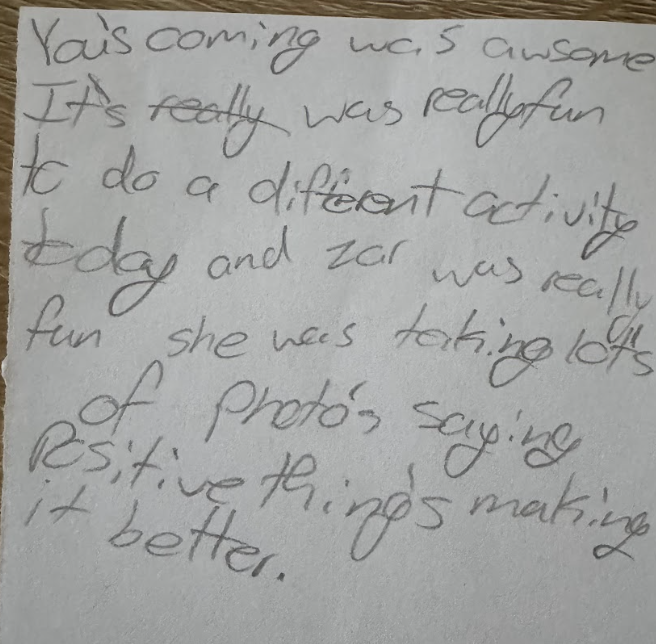 You's coming was awsome
It's really was really fun
to do a different activity
today and zar was really
fun she was taking lots
of photo's saying
Positive thing's making
it better.